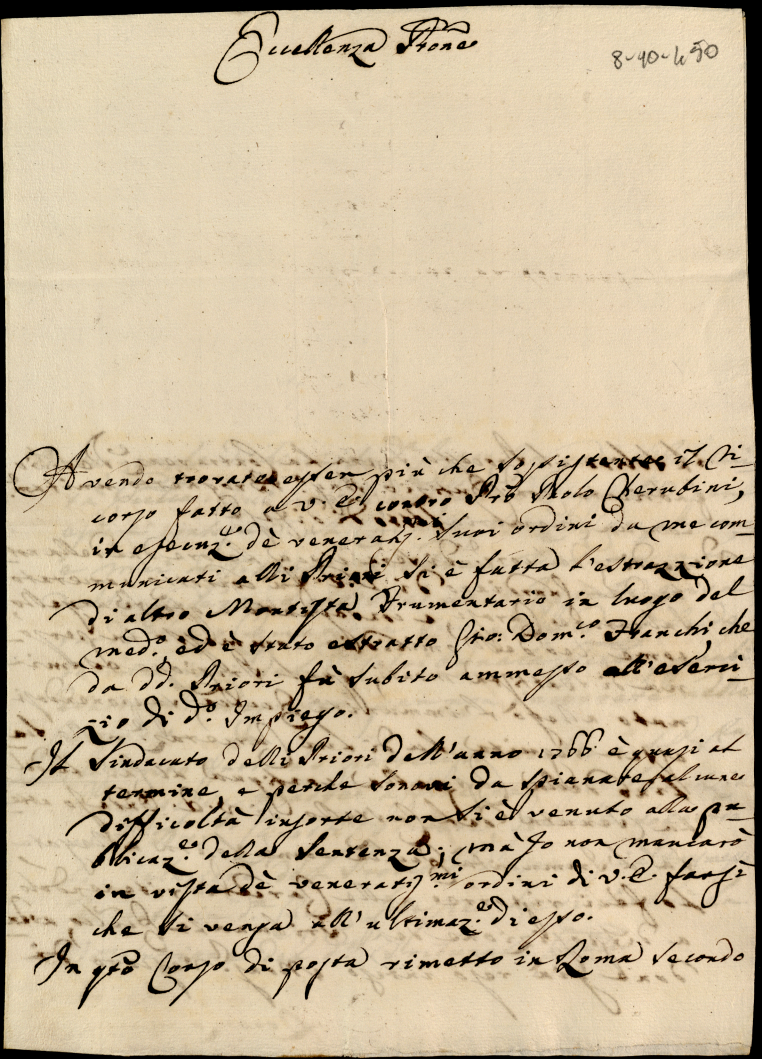 Eccellenza Prone
8-90-450
Avendo trovato esser più che sussistente il ri-
corso fatto a V. E. contro Pro Paolo Cherubini,
in esecuz.e dè veneratis.mi Suoi ordini da me com
municati alli Priori si è fatta l'estrazzione
di altro Montista Frumentario in luogo del
med.o ed è stato estratto Gio: Dom.co Franchi che
da dd. Priori fù subito ammesso all'eserci-
zio di d.o Impiego.
Il Sindacato delli Priori dell'anno 1766 è quasi al
termine, e perche sonovi da spianare alcune
difficoltà insorte non si è venuto alla pu-
blicaz.e della Sentenza; mà Io non mancarò
in vista dè veneratis.mi ordini di V. E. far sì
che si venga all'ultimaz.e di esso.
In qto Corso di posta rimetto in Roma secondo